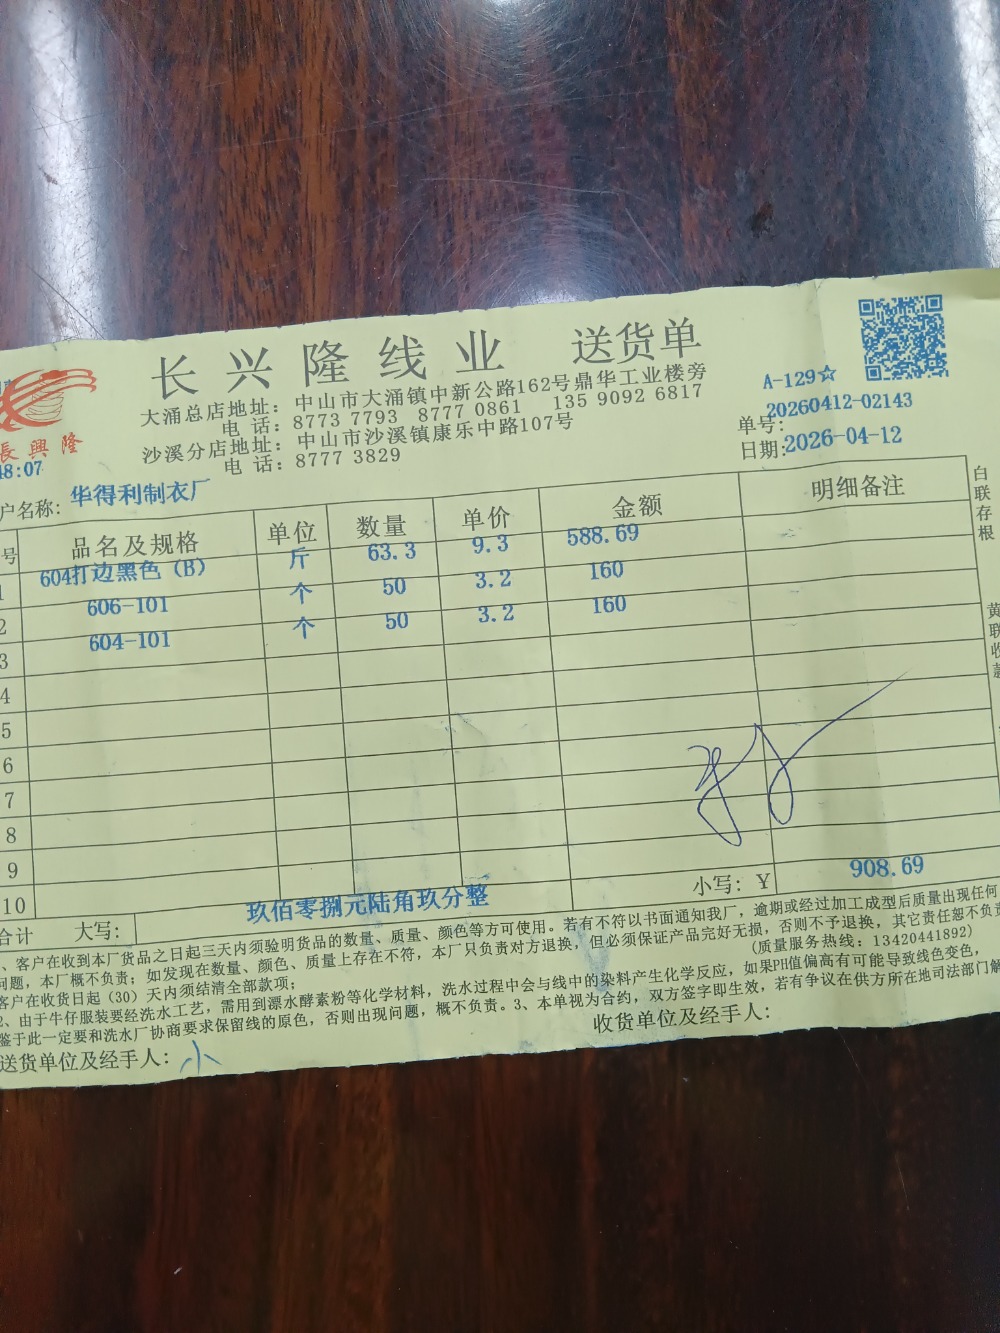 长兴隆线业 送货单
大涌总店地址：中山市大涌镇中新公路162号鼎华工业楼旁
电 话：8773 7793 8777 0861 135 9092 6817
沙溪分店地址：中山市沙溪镇康乐中路107号
电 话：8777 3829
長興隆
48:07
A-129☆
单号：20260412-02143
日期：2026-04-12
户名称：华得利制衣厂
号 品名及规格 单位 数量 单价 金额 明细备注
1 604打边黑色（B） 斤 63.3 9.3 588.69
2 606-101 个 50 3.2 160
3 604-101 个 50 3.2 160
4
5
6
7
8
9
10
合计 大写：玖佰零捌元陆角玖分整 小写：Y 908.69
、客户在收到本厂货品之日起三天内须验明货品的数量、质量、颜色等方可使用。若有不符以书面通知我厂，逾期或经过加工成型后质量出现任何
问题，本厂概不负责；如发现在数量、颜色、质量上存在不符，本厂只负责对方退换，但必须保证产品完好无损，否则不予退换，其它责任恕不负责
客户在收货日起（30）天内须结清全部款项； （质量服务热线：13420441892）
2、由于牛仔服装要经洗水工艺，需用到漂水酵素粉等化学材料，洗水过程中会与线中的染料产生化学反应，如果PH值偏高有可能导致线色变色，
鉴于此一定要和洗水厂协商要求保留线的原色，否则出现问题，概不负责。3、本单视为合约，双方签字即生效，若有争议在供方所在地司法部门解
送货单位及经手人：小 收货单位及经手人：
白联存根
黄联收款